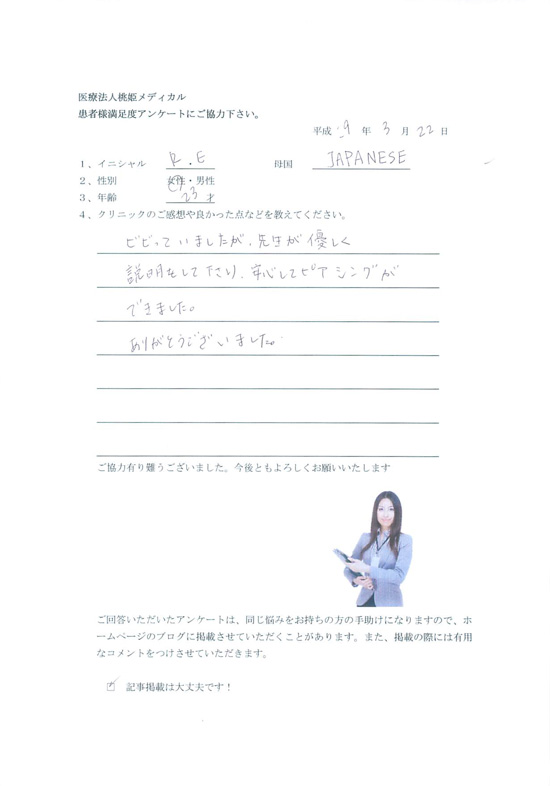 医療法人桃姫メディカル
患者様満足度アンケートにご協力下さい。
平成 29 年 3 月 22 日
1、イニシャル R.E 母国 JAPANESE
2、性別 女性・男性
3、年齢 23才
4、クリニックのご感想や良かった点などを教えてください。
ビビっていましたが、先生が優しく
説明をして下さり、安心してピアシングが
できました。
ありがとうございました。
ご協力有り難うございました。今後ともよろしくお願いいたします
ご回答いただいたアンケートは、同じ悩みをお持ちの方の手助けになりますので、ホ
ームページのブログに掲載させていただくことがあります。また、掲載の際には有用
なコメントをつけさせていただきます。
記事掲載は大丈夫です！